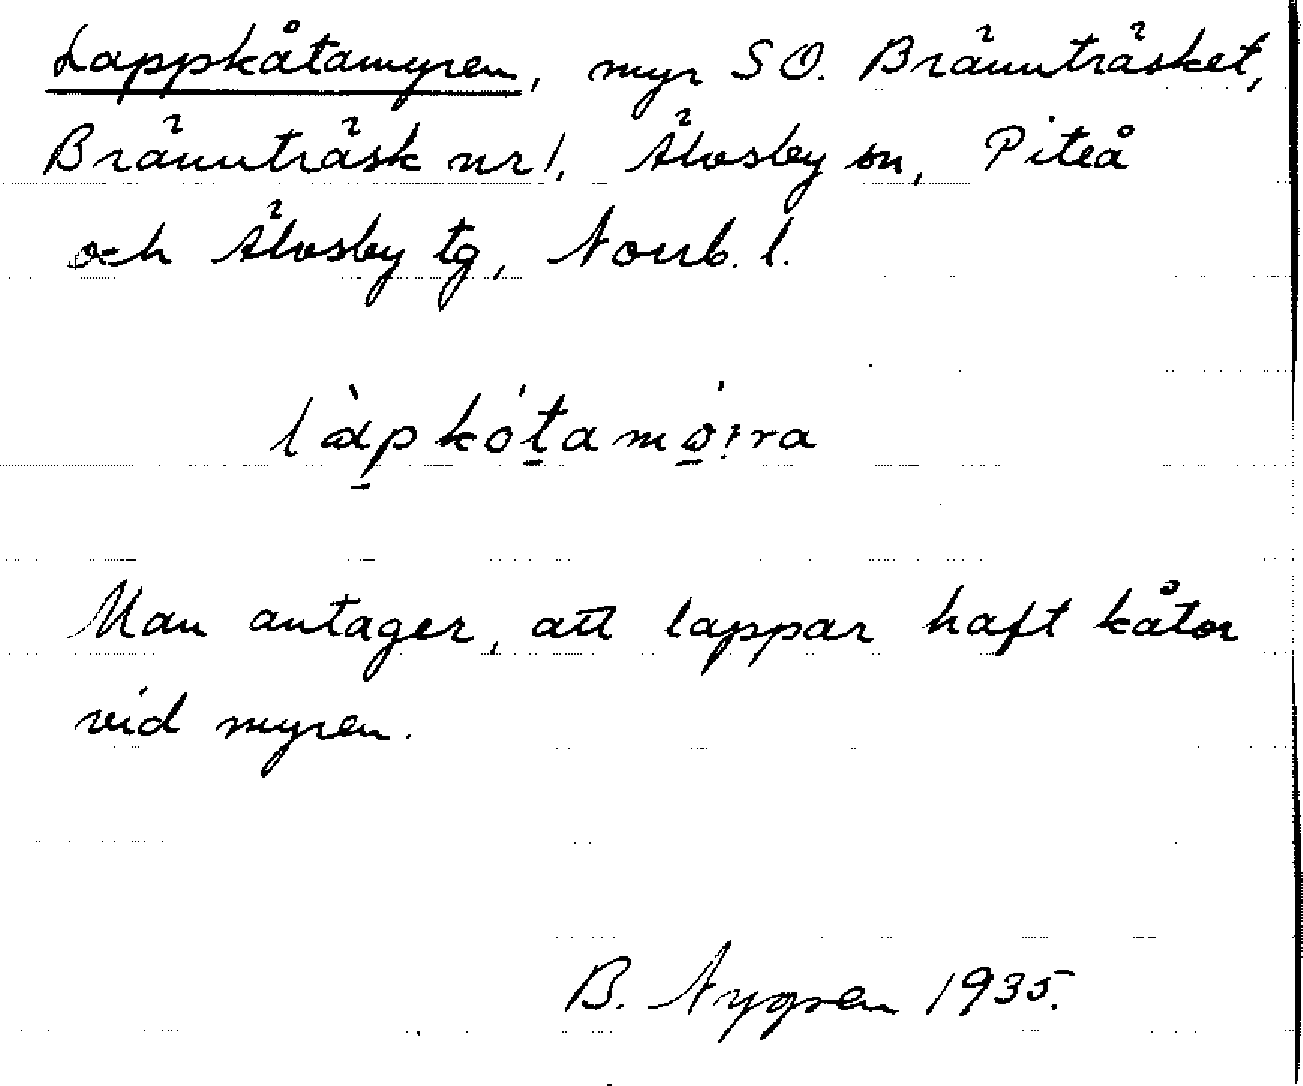 Lappkåtamyren, myr SO. Bränträsket,
Brännträsk nr 1, Älvsby sn, Piteå
och Älvsby tg, Norrb. l.
làpkótamö́:ra
Man antager, att lappar haft kåtor
vid myren.
B. Nygren 1935.